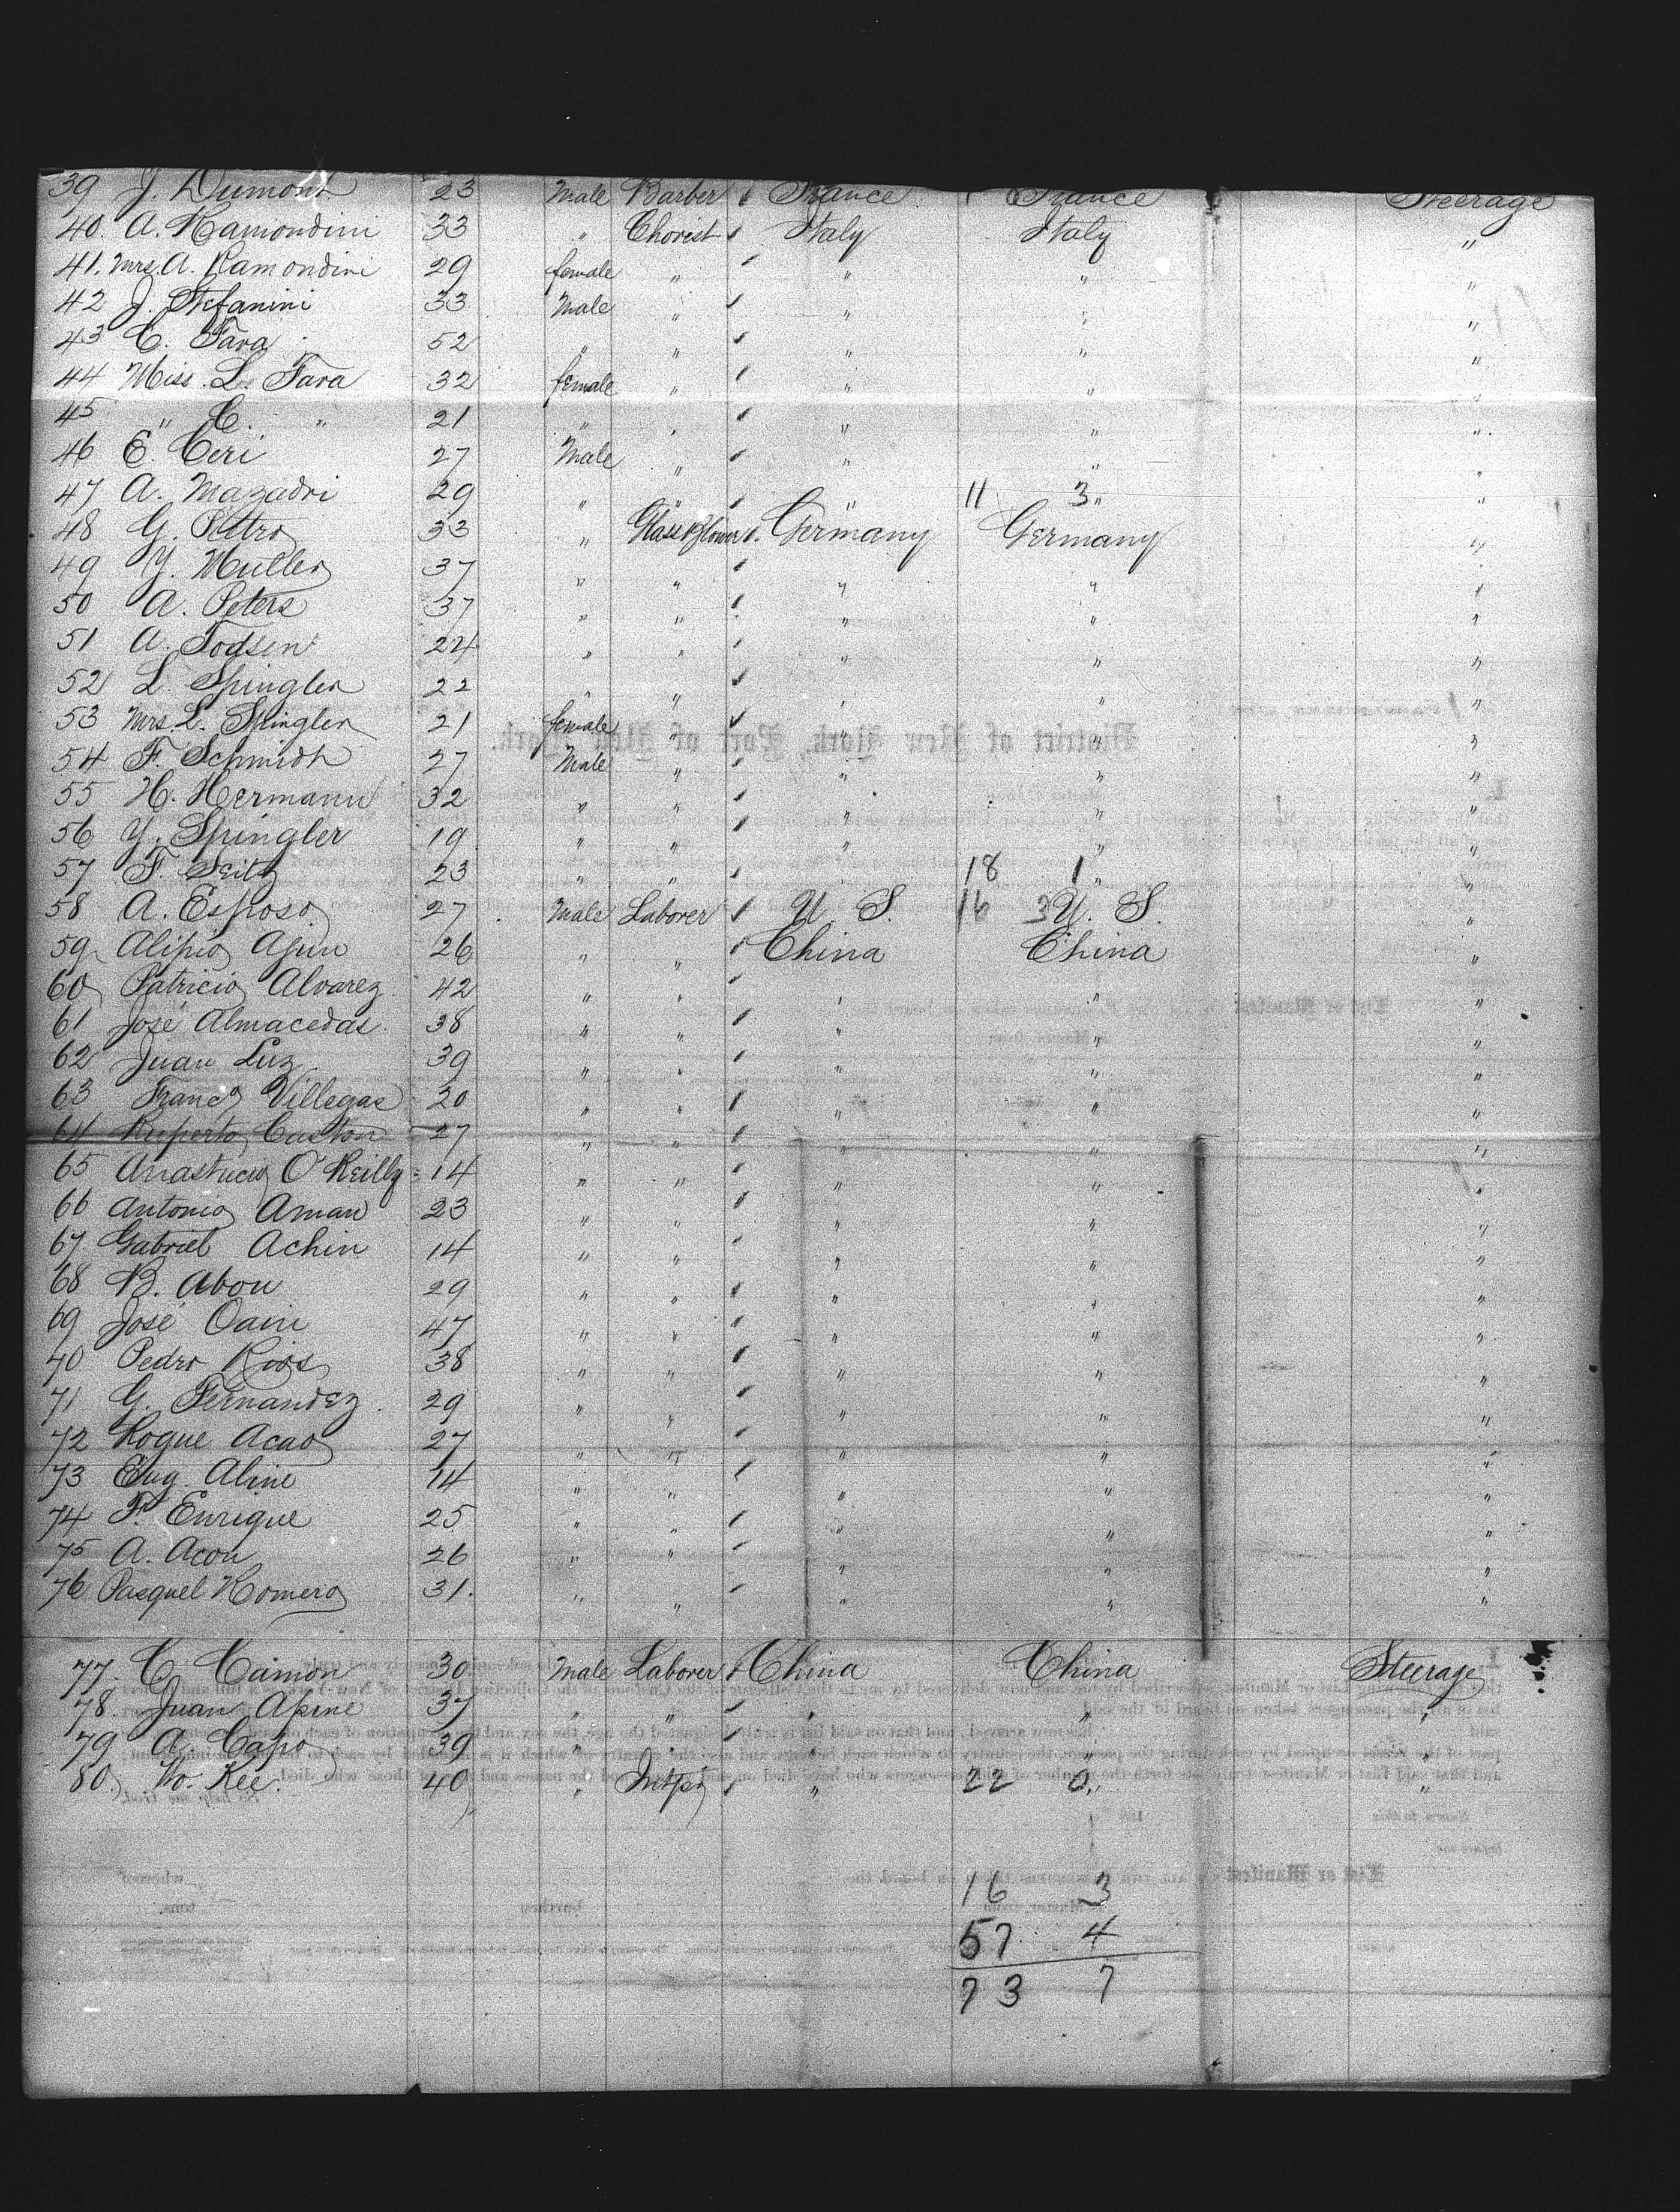 39 J. Dumont 23 Male Barber France France Steerage
40. A. Ramondini 33 " Chorist Italy Italy "
41. Mrs. A. Ramondini 29 female " " " "
42 J. Stefanini 33 Male " " " "
43 C. Fara 52 " " " " "
44 Miss. L. Fara 32 female " " " "
45 " C. " 21 " " " " "
46 E. Ceri 27 Male " " " "
47 A. Mazadri 29 " " " 11 3 " "
48 G. Petro 33 " Glass Blower Germany Germany "
49 Y. Muller 37 " " " " "
50 A. Peters 37 " " " " "
51 A. Todsen 24 " " " " "
52 L. Spingler 22 " " " " "
53 Mrs. L. Spingler 21 female " " " "
54 F. Schmidt 27 Male " " " "
55 H. Hermann 32 " " " " "
56 Y. Spingler 19 " " " " "
57 F. Seitz 23 " " " 18 1 " "
58 A. Esposo 27 Male Laborer U. S. 16 3 U. S. "
59 Alipio Ajin 26 " " China China "
60 Patricio Alvarez 42 " " " " "
61 José Almacedas 38 " " " " "
62 Juan Luz 39 " " " " "
63 Franco Villegas 30 " " " " "
64 Ruperto Caston 27 " " " " "
65 Anastucio O'Reilly = 14 " " " " "
66 Antonio Aman 23 " " " " "
67 Gabriel Achin 14 " " " " "
68 B. Abou 29 " " " " "
69 José Oaini 47 " " " " "
70 Pedro Rios 38 " " " " "
71 G. Fernandez 29 " " " " "
72 Roque Acao 27 " " " " "
73 Eug. Aline 14 " " " " "
74 F. Enrique 25 " " " " "
75 A. Acou 26 " " " " "
76 Pasquel Romero 31. " " " " "
77. C. Camon 30 Male Laborer China China Steerage
78. Juan Apine 37 " " " " "
79 A. Capo 39 " " " " "
80 Wo. Kee. 40 " Intpr " 22 0 " "
16 3
57 4
73 7